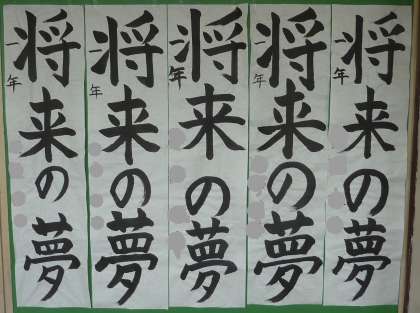 将来の夢
一年
将来の夢
一年
将来の夢
一年
将来の夢
一年
将来の夢
一年